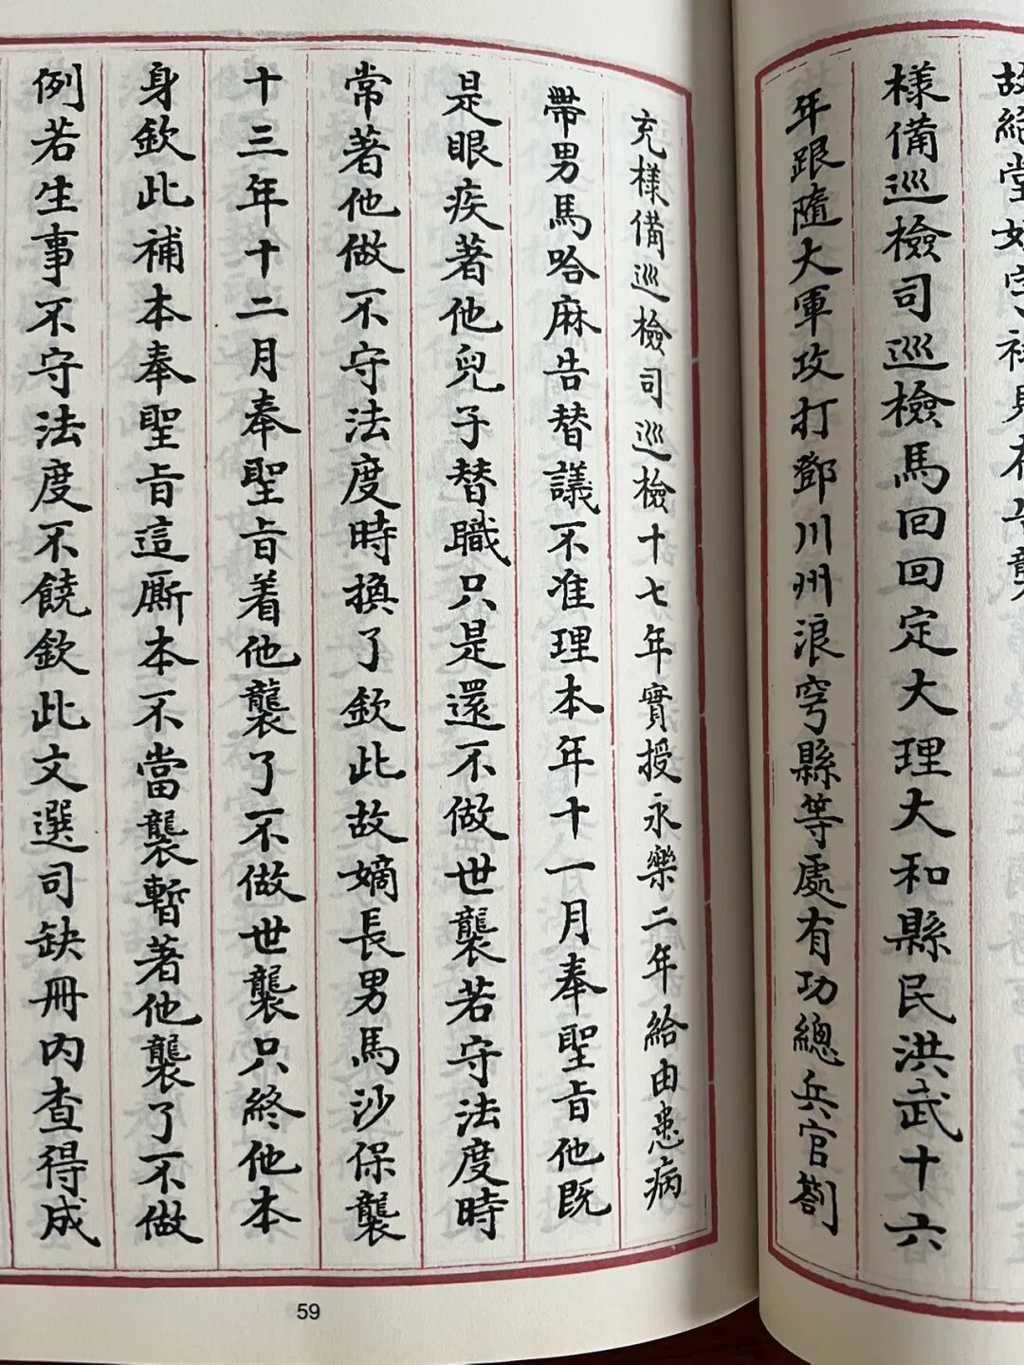 故絕堂
樣備巡檢司巡檢馬回回定大理大和縣民洪武十六
年跟隨大軍攻打鄧川州浪穹縣等處有功總兵官劄
充樣備巡檢司巡檢十七年實授永樂二年給由患病
帶男馬哈麻告替議不准理本年十一月奉聖旨他既
是眼疾著他兒子替職只是還不做世襲若守法度時
常著他做不守法度時換了欽此故嫡長男馬沙保襲
十三年十二月奉聖旨着他襲了不做世襲只終他本
身欽此補本奉聖旨這厮本不當襲暫著他襲了不做
例若生事不守法度不饒欽此文選司缺冊內查得成
59